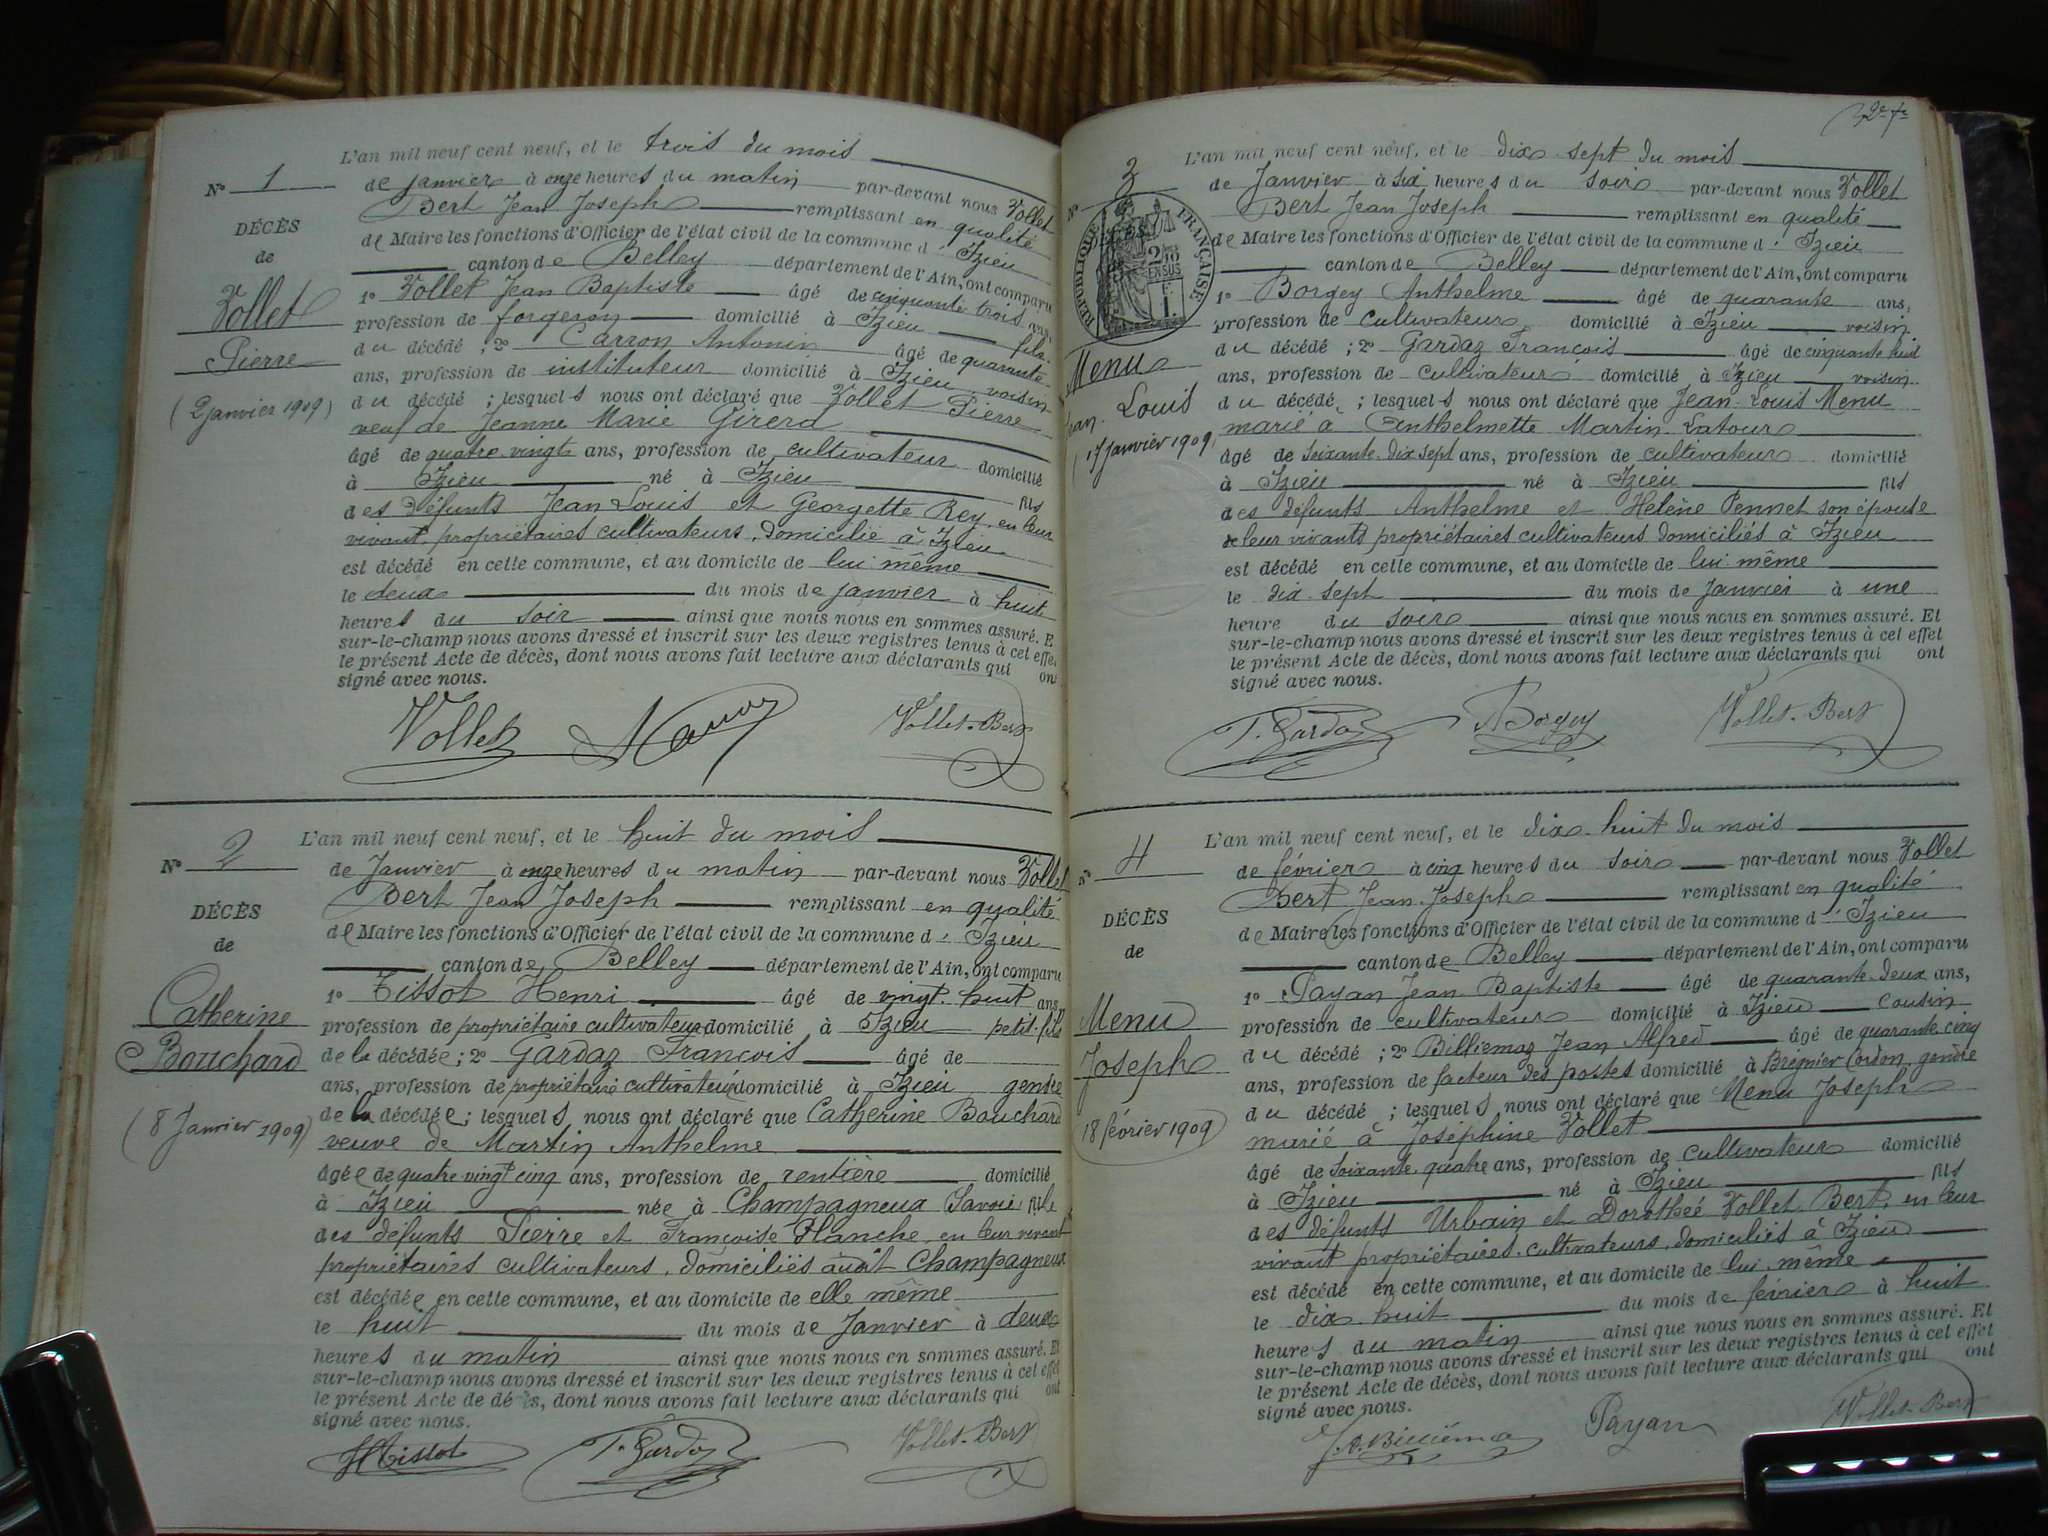 L'an mil neuf cent neuf, et le trois du mois
N° 1
de janvier à onze heures du matin par-devant nous Vollet
Bert Jean Joseph remplissant en qualité
DÉCÈS
de Maire les fonctions d'Officier de l'état civil de la commune d' Izieu
de
canton de Belley département de l'Ain, ont comparu
Vollet
1° Vollet Jean Baptiste âgé de cinquante trois ans,
profession de forgeron domicilié à Izieu fils
Pierre
du décédé ; 2° Carron Antonin âgé de quarante
ans, profession de instituteur domicilié à Izieu voisin
(2 janvier 1909)
du décédé ; lesquels nous ont déclaré que Vollet Pierre
veuf de Jeanne Marie Girerd
âgé de quatre vingts ans, profession de cultivateur domicilié
à Izieu né à Izieu fils
des défunts Jean Louis et Georgette Rey, en leur
vivant propriétaires cultivateurs, domicilié à Izieu
est décédé en cette commune, et au domicile de lui même
le deux du mois de janvier à huit
heures du soir ainsi que nous nous en sommes assuré. Et
sur-le-champ nous avons dressé et inscrit sur les deux registres tenus à cet effet
le présent Acte de décès, dont nous avons fait lecture aux déclarants qui ont
signé avec nous.
Vollet Vollet-Bert
L'an mil neuf cent neuf, et le huit du mois
N° 2
de Janvier à onze heures du matin par-devant nous Vollet
Bert Jean Joseph remplissant en qualité
DÉCÈS
de Maire les fonctions d'Officier de l'état civil de la commune d' Izieu
de
canton de Belley département de l'Ain, ont comparu
Catherine
1° Tissot Henri âgé de vingt huit ans,
profession de propriétaire cultivateur domicilié à Izieu petit-fils
Bouchard
de la décédée ; 2° Gardaz François âgé de
ans, profession de propriétaire cultivateur domicilié à Izieu gendre
(8 Janvier 1909)
de la décédée ; lesquels nous ont déclaré que Catherine Bouchard
veuve de Martin Anthelme
âgée de quatre vingt cinq ans, profession de rentière domicilié
à Izieu née à Champagneux Savoie fille
des défunts Pierre et Françoise Planche, en leur vivant
propriétaires cultivateurs, domiciliés audit Champagneux
est décédée en cette commune, et au domicile de elle même
le huit du mois de Janvier à deux
heures du matin ainsi que nous nous en sommes assuré. Et
sur-le-champ nous avons dressé et inscrit sur les deux registres tenus à cet effet
le présent Acte de décès, dont nous avons fait lecture aux déclarants qui ont
signé avec nous.
HTissot F. Gardaz Vollet-Bert
L'an mil neuf cent neuf, et le dix-sept du mois
N° 3
de Janvier à six heures du soir par-devant nous Vollet
Bert Jean Joseph remplissant en qualité
de Maire les fonctions d'Officier de l'état civil de la commune d' Izieu
RÉPUBLIQUE FRANÇAISE
2/10 EN SUS
canton de Belley département de l'Ain, ont comparu
1° Borgey Anthelme âgé de quarante ans,
profession de cultivateur domicilié à Izieu voisin
du décédé ; 2° Gardaz François âgé de cinquante huit
Menu
ans, profession de cultivateur domicilié à Izieu voisin
Jean-Louis
du décédé ; lesquels nous ont déclaré que Jean-Louis Menu
marié à Anthelmette Martin-Latour
(17 Janvier 1909)
âgé de soixante-dix sept ans, profession de cultivateur domicilié
à Izieu né à Izieu fils
des défunts Anthelme et Helène Pennet son épouse
leur vivants propriétaires cultivateurs domiciliés à Izieu
est décédé en cette commune, et au domicile de lui même
le dix-sept du mois de Janvier à une
heure du soir ainsi que nous nous en sommes assuré. Et
sur-le-champ nous avons dressé et inscrit sur les deux registres tenus à cet effet
le présent Acte de décès, dont nous avons fait lecture aux déclarants qui ont
signé avec nous.
F. Gardaz ABorgey Vollet-Bert
L'an mil neuf cent neuf, et le dix-huit du mois
N° 4
de février à cinq heures du soir par-devant nous Vollet
Bert Jean-Joseph remplissant en qualité
DÉCÈS
de Maire les fonctions d'Officier de l'état civil de la commune d' Izieu
de
canton de Belley département de l'Ain, ont comparu
1° Payan Jean-Baptiste âgé de quarante-deux ans,
Menu
profession de cultivateur domicilié à Izieu cousin
du décédé ; 2° Billiemaz Jean Alfred âgé de quarante cinq
Joseph
ans, profession de facteur des postes domicilié à Brégnier Cordon, gendre
du décédé ; lesquels nous ont déclaré que Menu Joseph
18 février 1909
marié à Joséphine Vollet
âgé de soixante-quatre ans, profession de cultivateur domicilié
à Izieu né à Izieu fils
des défunts Urbain et Dorothée Vollet-Bert, en leur
vivant propriétaires-cultivateurs, domiciliés à Izieu
est décédé en cette commune, et au domicile de lui-même
le dix-huit du mois de février à huit
heures du matin ainsi que nous nous en sommes assuré. Et
sur-le-champ nous avons dressé et inscrit sur les deux registres tenus à cet effet
le présent Acte de décès, dont nous avons fait lecture aux déclarants qui ont
signé avec nous.
Payan Vollet-Bert